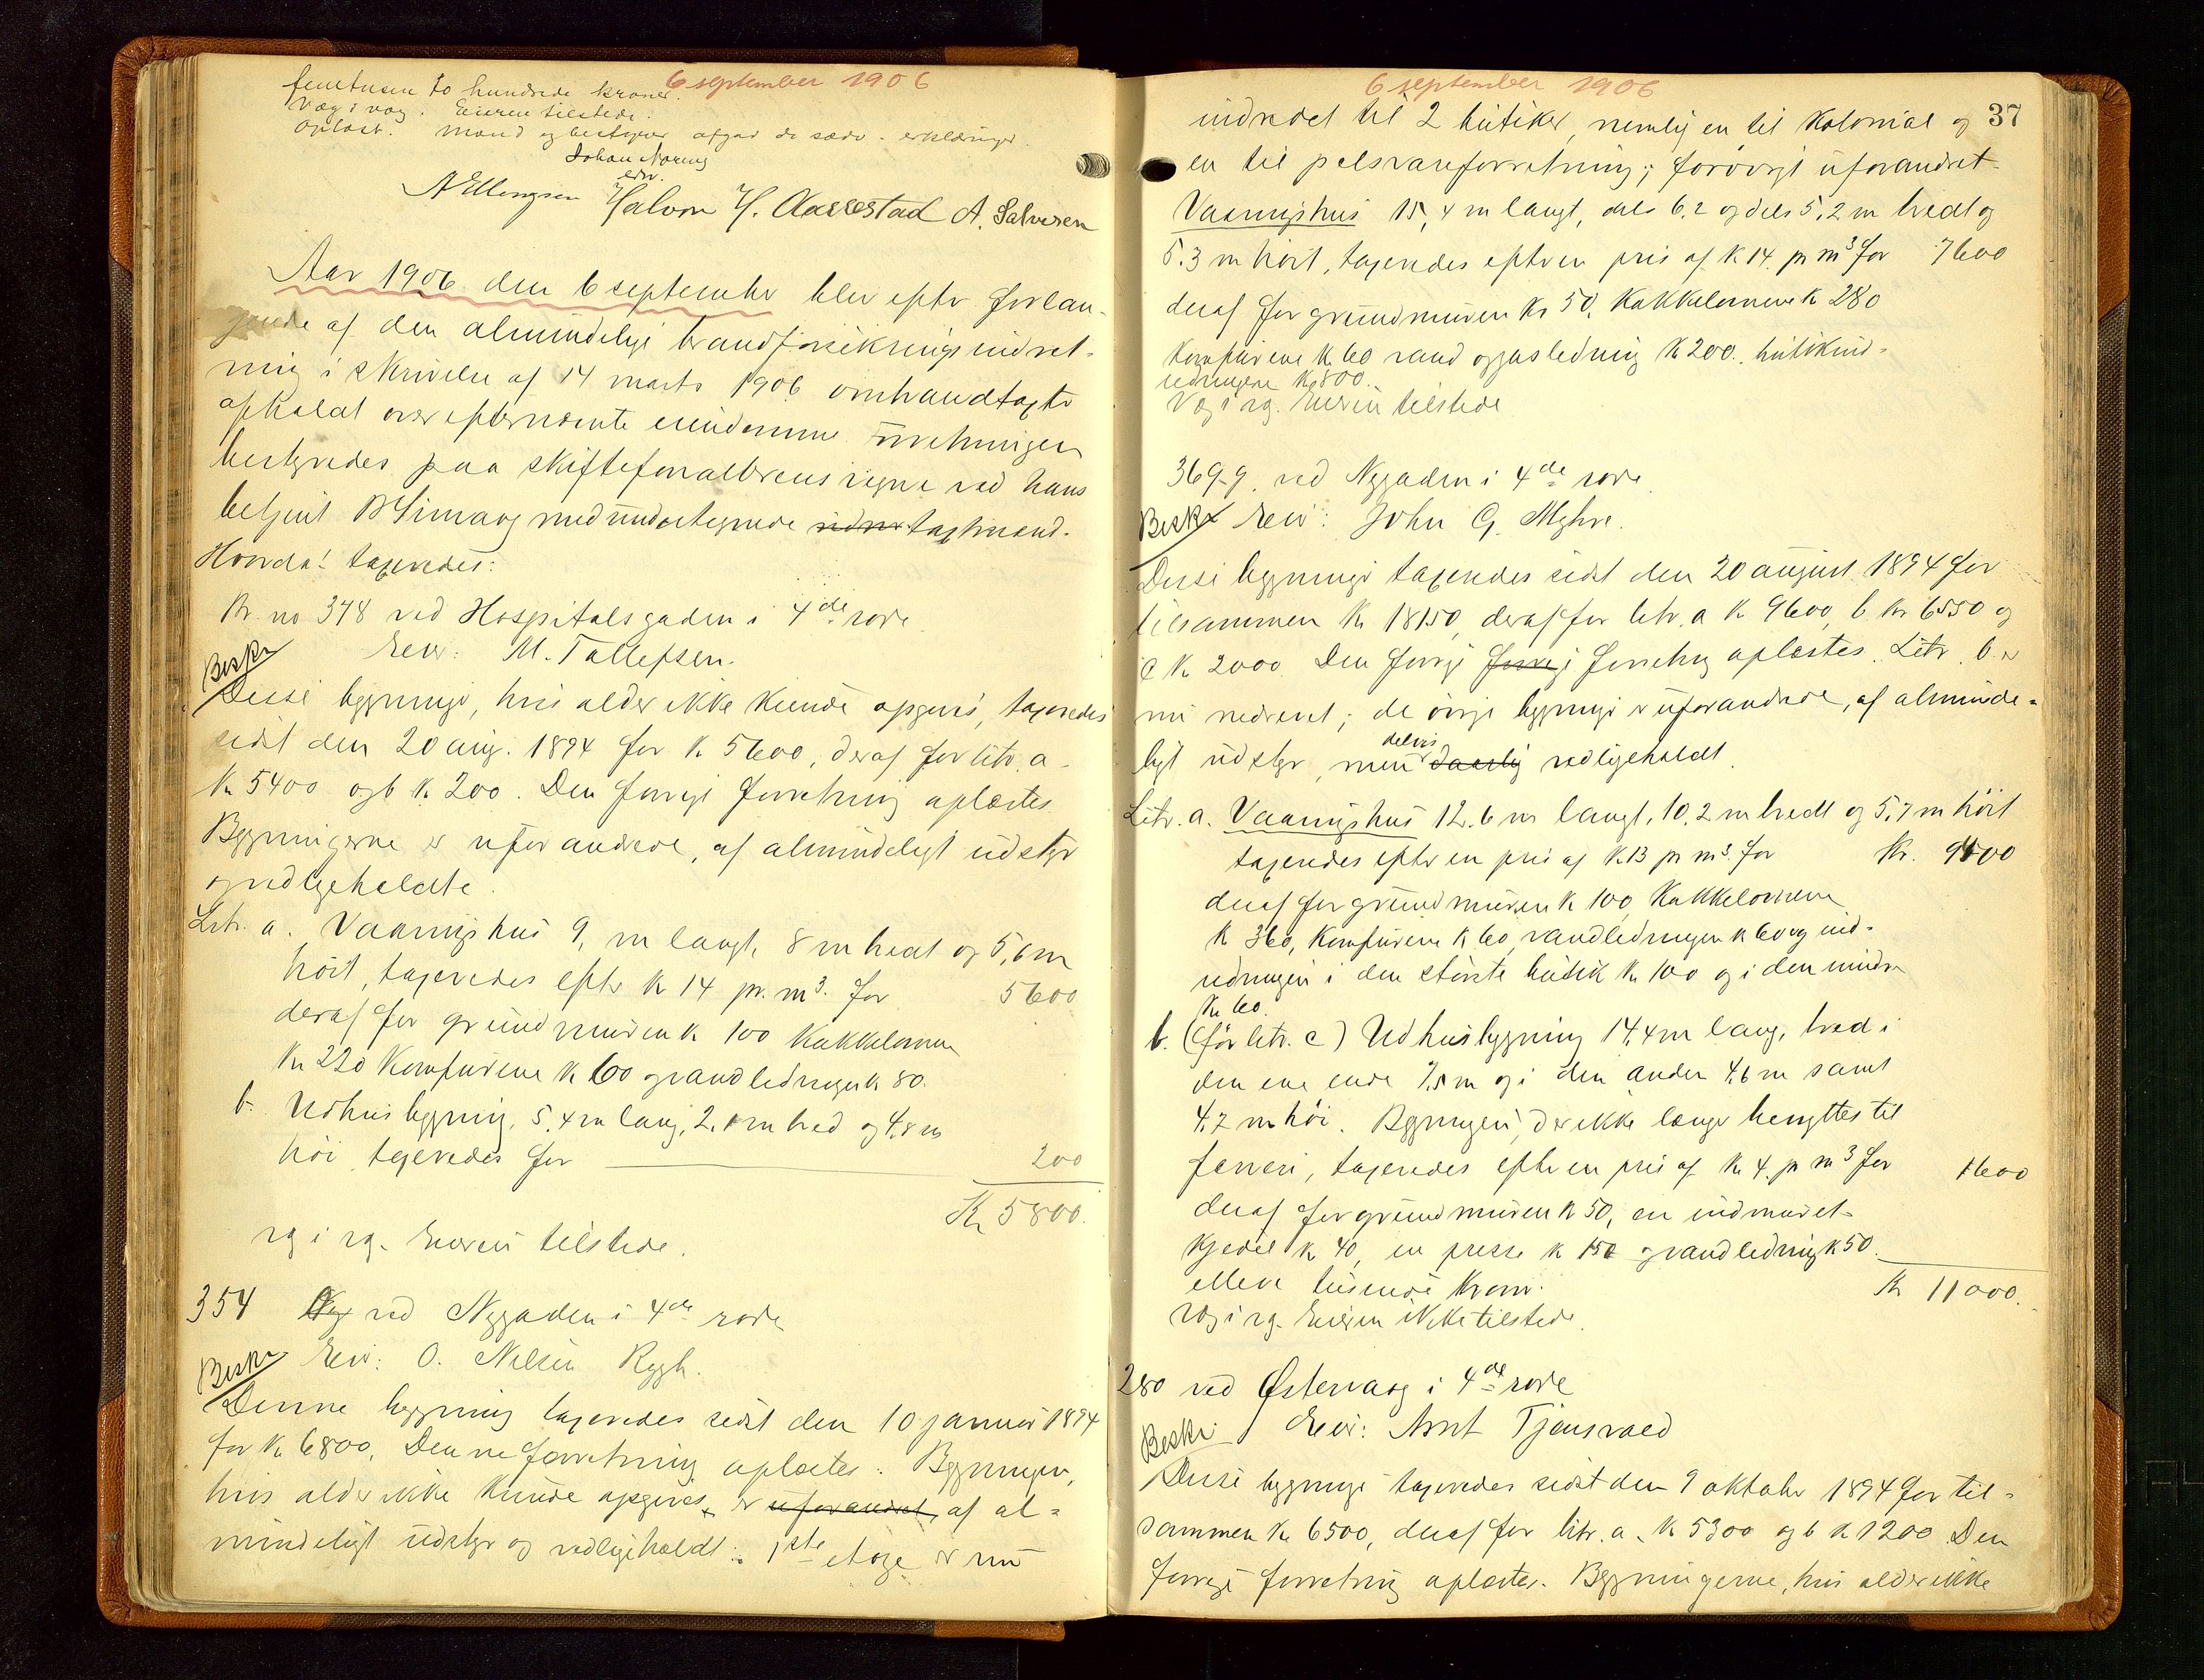 6 september 1906
femtusen to hundrede kroner.
Væg i væg. Eieren tilstede.
Oplæst. Mænd og bestyrer afgav de sædv. erklæringer.
Johan Noreng
edv.
A Ellingsen Halvor H. Aarrestad A. Salvesen
Aar 1906 den 6 september blev efter forlan-
gende af den almindelige brandforsikringsindret-
ning i skrivelse af 14 marts 1906 omhandtagst
afholdt over efternævnte eiendomme. Forretningen
bestyredes paa skifteforvalterens vegne ved hans
betjent B Simaog med undertegnede vidner tagtmænd.
Hvorda! taxeredes:
Br. no 378 ved Hospitalsgaden i 4de rode
Beskr Eier: M. Tallefsen.
Disse bygninger, hvis alder ikke kunde opgives, taxeredes
sidst den 20 aug. 1894 for K 5600, deraf for litr. a
K 5400 og b K 200. Den forrige forretning oplæstes
Bygningerne er uforandrede, af almindeligt udstyr
og vedligeholdte.
Litr. a. Vaaningshus 9, m langt, 8 m bredt og 5,6 m
høit, taxeredes efter K 14 pr. m3. for 5600
deraf for grundmuren K 100 Kakkelovnene
Kr 220 Komfurene K 60 og vandledningen K 80.
b. Udhusbygning, 5,4 m lang, 2,1 m bred og 4,8 m
høi taxeredes for 200
Kr 5800.
vg i vg. Eieren tilstede.
354 ved Nygaden i 4de rode
Beskr Eier: O. Nilsen Rygh.
Denne bygning taxeredes sidst den 10 januar 1894
for K 6800. Denne forretning oplæstes. Bygningen,
hvis alder ikke kunde opgives, er uforandret, af al-
mindeligt udstyr og vedligeholdt. 1ste etage er nu
6 september 1906
37
indredet til 2 butiker, nemlig en til Kolonial og
en til pelsvareforretning; forøvrigt uforandret.
Vaaningshus 15,4 m langt, dels 6.2 og dels 5,2 m bredt og
5.3 m høit, taxeredes efter en pris af K 14. pr m3 for 7600
deraf for grundmuren Kr 50, Kakkelovnene K 280
Komfurene K 60 vand og gasledning K 200. butikind-
redningene K 800.
Væg i vg. Eieren tilstede
369-9. ved Nygaden i 4de rode.
Beskr Eier: John G. Myhre.
Disse bygninger taxeredes sidst den 20 august 1894 for
tilsammen K 18150, deraf for litr. a K 9600, b Kr 6550 og
c K 2000. Den forrige forrige forretning oplæstes. Litr. b er
nu nedrevet; de øvrige bygninger er uforandrede, af alminde-
ligt udstyr, men delvis daarlig vedligeholdt.
Litr. a. Vaaningshus 12.6 m langt, 10,2 m bredt og 5,7 m høit
taxeredes efter en pris af K 13 pr m3. for Kr. 9400
deraf for grundmuren K 100, Kakkelovnene
K 360, Komfurene K 60, vandledningen K 60 og ind-
redningen i den største butik K 100 og i den mindre
K 60.
b. (før litr. c) Udhusbygning 14,4 m lang, bred i
den ene ende 7,5 m og i den anden 4,6 m samt
4,7 m høi. Bygningen, der ikke længer benyttes til
farveri, taxeredes efter en pris af K 4. pr m3 for 1600
deraf for grundmuren K 50, en indmuret
Kjedel K 40, en presse K 150 og vandledning K 50.
elleve tusende Kroner. Kr 11000.
Væg i vg. Eieren ikke tilstede.
280 ved Østervaag i 4de rode
Beskr Eier: Arnt Tjensvold
Disse bygninger taxeredes sidst den 9 oktober 1894 for til-
sammen Kr 6500, deraf for litr. a. K 5300 og b K 1200. Den
forrige forretning oplæstes. Bygningerne, hvis alder ikke